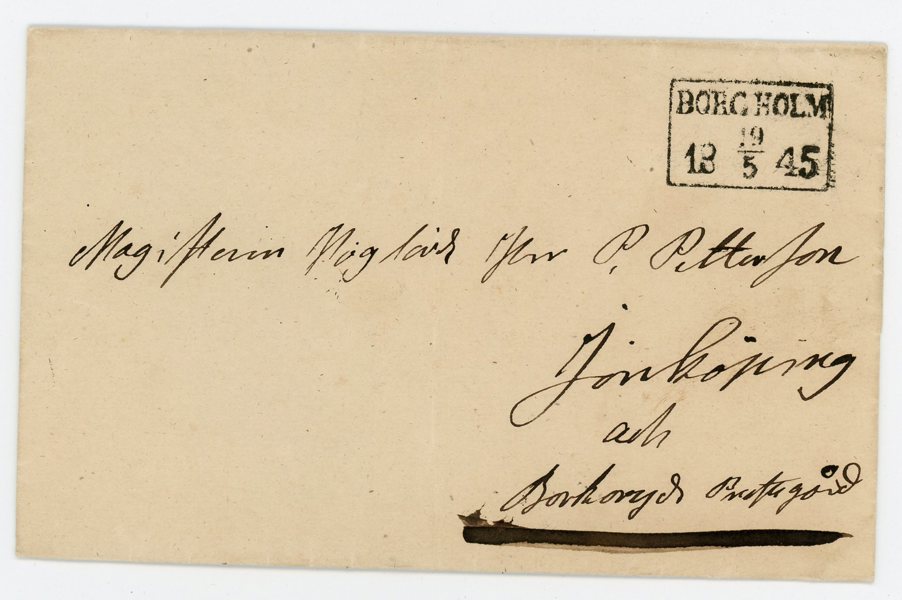 BORGHOLM
18 19/5 45
Magistern Höglärd Herr P. Petterson
Jönköping
och
Barkeryds Prestegård